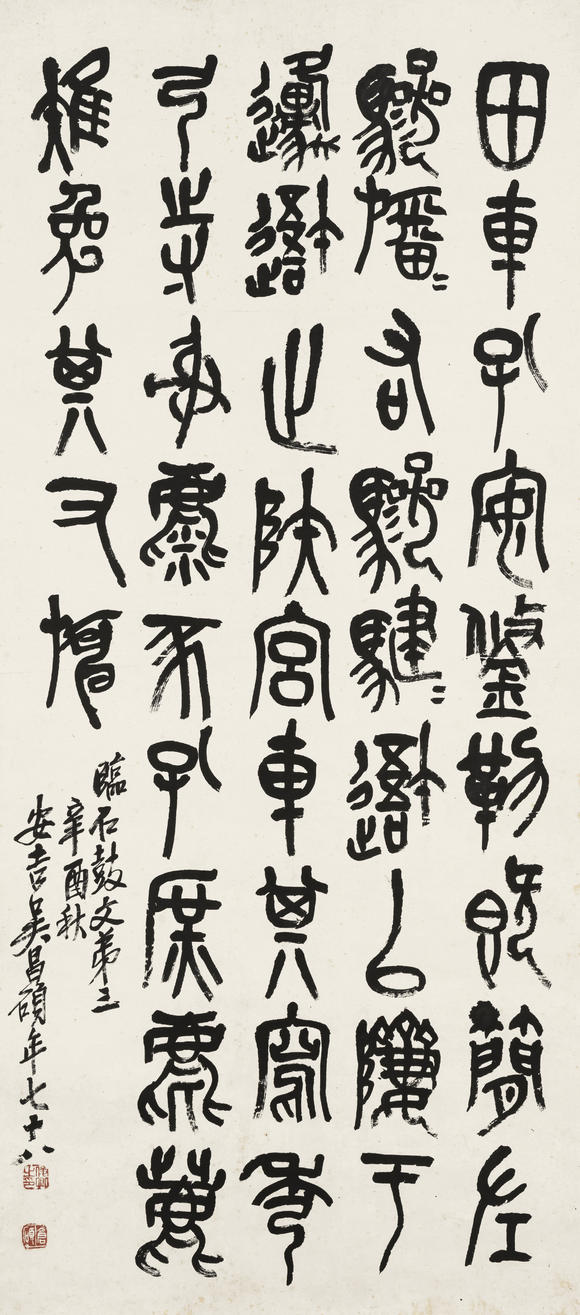 田車孔安鋚勒既簡左
驂旛=右驂騝=吾以隮于
邍吾止陕宮車其寫秀
弓寺射麋豕孔庶麀鹿
雉兔其又旃
臨石鼓文弟三
辛酉秋
安吉吳昌碩年七十八